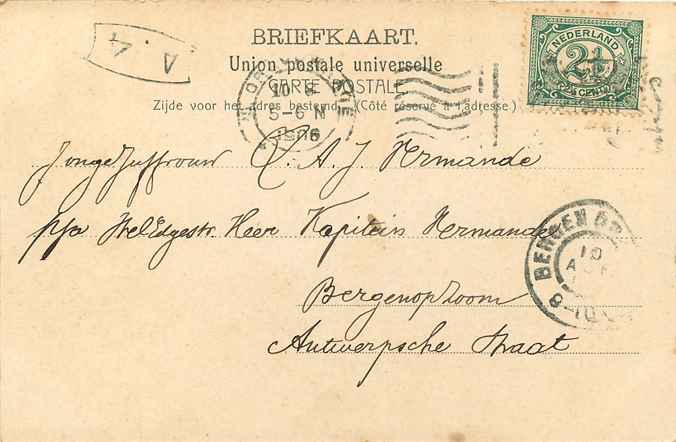 A. 4
BRIEFKAART.
Union postale universelle
CARTE POSTALE
Zijde voor het adres bestemd. (Côté réservé à l'adresse.)
NEDERLAND
2½
CENT
10 8
5-6 N
1906
Jongejuffrouw C. A. J. Hermande
p/a WelEdgestr. Heer Kapitein Hermande
BERGEN
10
Bergenopzoom
Antwerpsche Straat